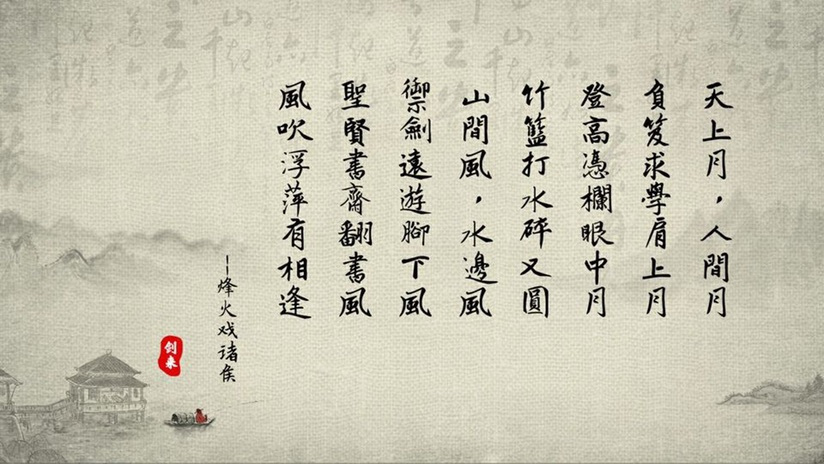 天上月，人間月
負笈求學肩上月
登高憑欄眼中月
竹籃打水碎又圓
山間風，水邊風
御劍遠遊腳下風
聖賢書齋翻書風
風吹浮萍有相逢
--烽火戏诸侯
剑来